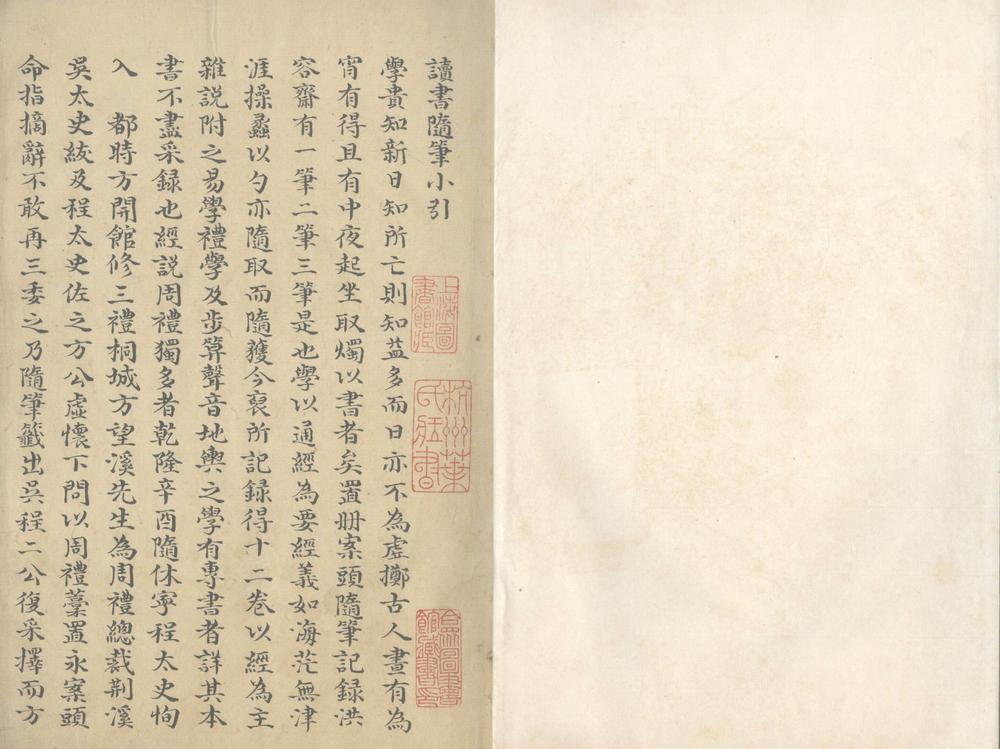 讀書隨筆小引
學貴知新日知所亡則知益多而日亦不為虛擲古人晝有為
宵有得且有中夜起坐取燭以書者矣置冊案頭隨筆記録洪
容齋有一筆二筆三筆是也學以通經為要經義如海茫無津
涯操蠡以勺亦隨取而隨獲今裒所記録得十二卷以經為主
雜説附之易學禮學及步算聲音地輿之學有專書者詳其本
書不盡采録也經説周禮獨多者乾隆辛酉隨休寧程太史恂
入都時方開館修三禮桐城方望溪先生為周禮總裁荆溪
吳太史紱及程太史佐之方公虛懷下問以周禮藁置永案頭
命指摘辭不敢再三委之乃隨筆籤出吳程二公復采擇而方
上海圖
書館藏
杭州葉
氏藏書
合眾圖書
館藏書印